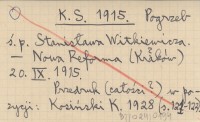 K.S. 1915. Pogrzeb
ś.p. Stanisława Witkiewicza.
— Nowa Reforma (Kraków)
20. IX. 1915.
Przedruk (całości?) w po-
zycji: Kosiński K. 1928 (s.